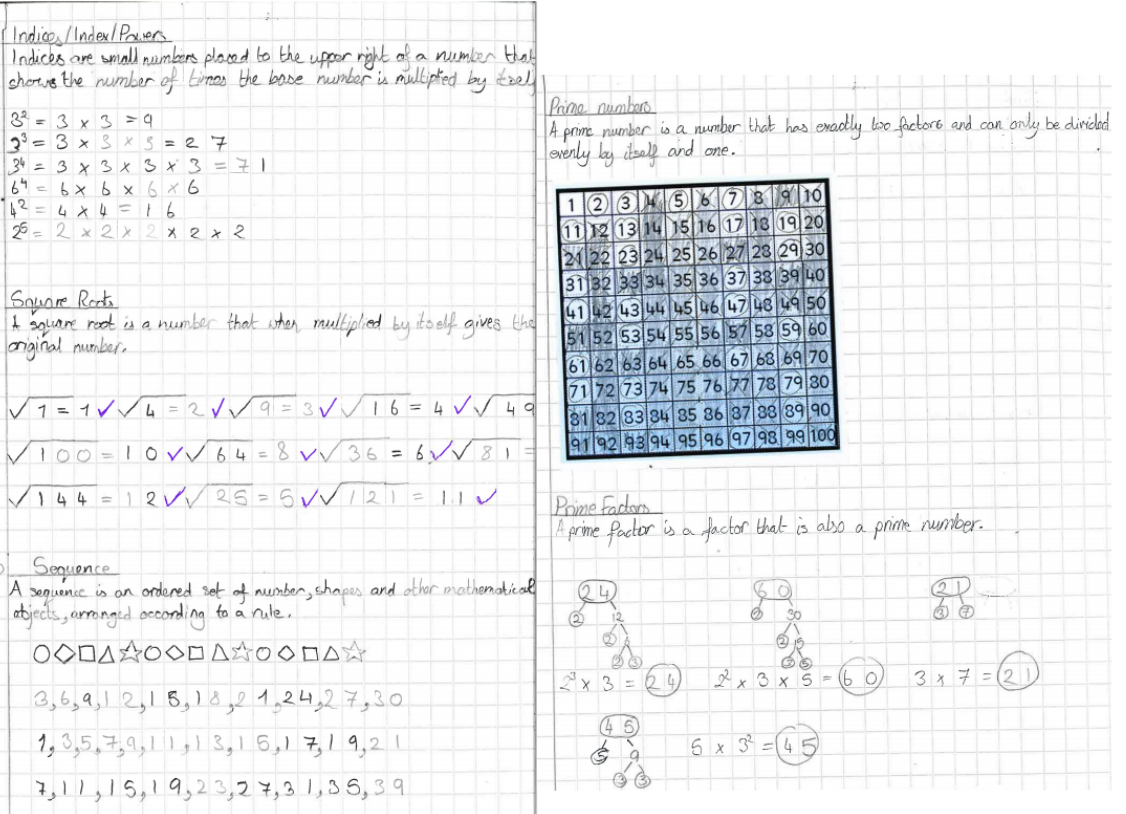 Indices/Index/Powers
Indices are small numbers placed to the upper right of a number that
shows the number of times the base number is multiplied by itself
3² = 3 x 3 = 9
3³ = 3 x 3 x 3 = 27
3⁴ = 3 x 3 x 3 x 3 = 71
6⁴ = 6 x 6 x 6 x 6
4² = 4 x 4 = 16
2⁵ = 2 x 2 x 2 x 2 x 2
Square Roots
A square root is a number that when multiplied by itself gives the
original number.
√1 = 1 ✓ √4 = 2 ✓ √9 = 3 ✓ √16 = 4 ✓ √49
√100 = 10 ✓ √64 = 8 ✓ √36 = 6 ✓ √81 =
√144 = 12 ✓ √25 = 5 ✓ √121 = 11 ✓
Sequence
A sequence is an ordered set of number, shapes and other mathematical
objects, arranged according to a rule.
3,6,9,12,15,18,21,24,27,30
1,3,5,7,9,11,13,15,17,19,21
7,11,15,19,23,27,31,35,39
Prime numbers
A prime number is a number that has exactly two factors and can only be divided
evenly by itself and one.
1 2 3 4 5 6 7 8 9 10
11 12 13 14 15 16 17 18 19 20
21 22 23 24 25 26 27 28 29 30
31 32 33 34 35 36 37 38 39 40
41 42 43 44 45 46 47 48 49 50
51 52 53 54 55 56 57 58 59 60
61 62 63 64 65 66 67 68 69 70
71 72 73 74 75 76 77 78 79 80
81 82 83 84 85 86 87 88 89 90
91 92 93 94 95 96 97 98 99 100
Prime Factors
A prime factor is a factor that is also a prime number.
24 60 21
2 12 2 30 3 7
2 2 15
2 3 3 5
2³ x 3 = 24 2² x 3 x 5 = 60 3 x 7 = 21
45
5 9
3 3
5 x 3² = 45